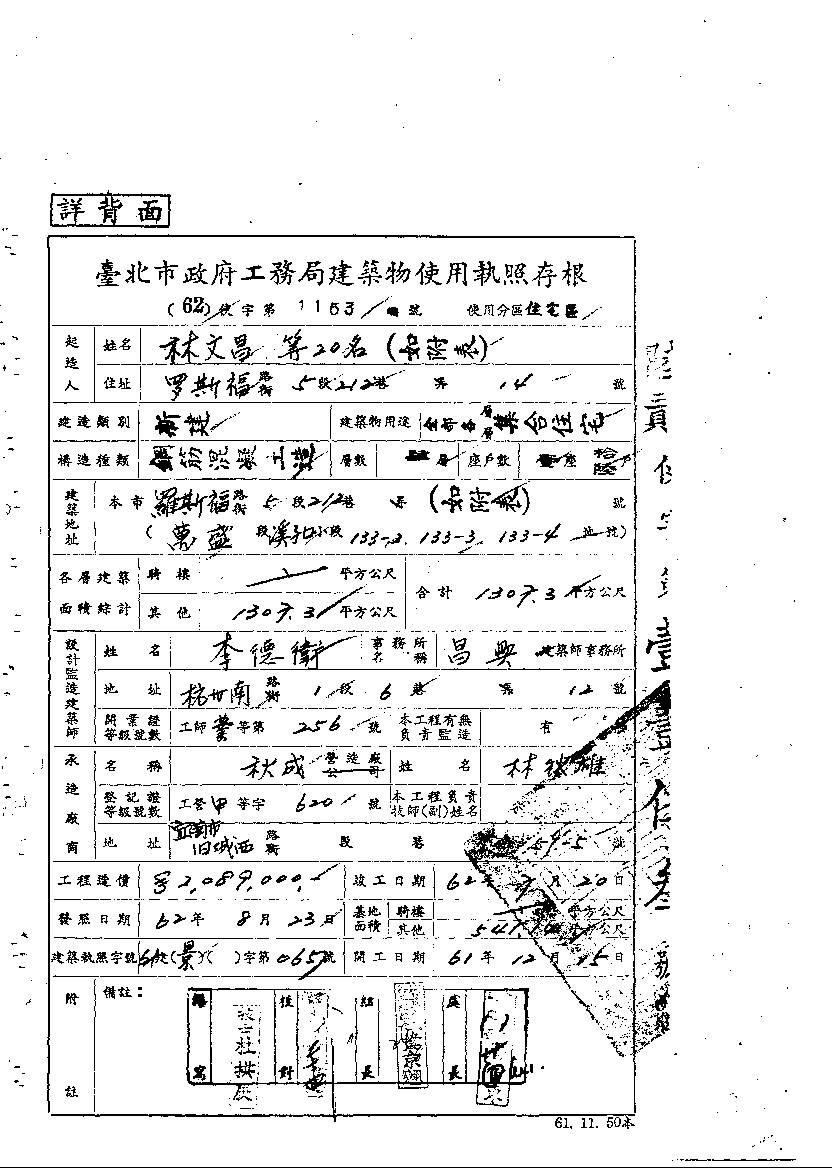 詳背面
臺北市政府工務局建築物使用執照存根
(62)使字第1153編號 使用分區住宅區
起造人 姓名 林文昌 等20名(如附表)
住址 罗斯福路街 5段212巷 弄 14 號
建造類別 新建 建築物用途 全部各層集合住宅
構造種類 鋼筋混凝土造 層數 層 座戶數 壹座 拾陸戶
建築地址 本市 羅斯福路街 5段212巷 弄 (如附表) 號
(萬盛 段溪子口小段 133-2, 133-3, 133-4 地號)
各層建築面積綜計 騎樓 平方公尺
其他 1307.3 平方公尺 合計 1307.3 平方公尺
設計監造建築師 姓名 李德衛 事務所名稱 昌興 建築師事務所
地址 杭州南路街 1段6巷 弄 12 號
開業證等級號數 工師業等第 256 號 本工程有無負責監造 有
承造廠商 名稱 秋成 營造廠公司 姓名 林 雄
登記證等級號數 工營甲等字 620 號 本工程負責技師(副)姓名
地址 宜蘭市旧城西路街 段 巷 59-5 號
工程造價 2,089,000, 竣工日期 62年7月20日
發照日期 62年8月23日 基地面積 騎樓 平方公尺
其他 547. 平方公尺
建築執照字號 61建(景)( )字第065號 開工日期 61年12月15日
附註 備註:
組長 處長
61. 11. 50本